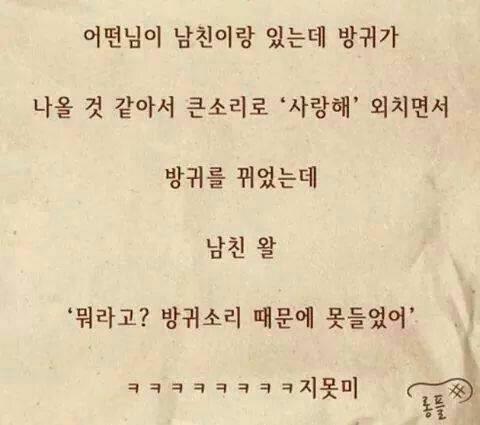 어떤님이 남친이랑 있는데 방귀가
나올 것 같아서 큰소리로 ‘사랑해’ 외치면서
방귀를 뀌었는데
남친 왈
‘뭐라고? 방귀소리 때문에 못들었어’
ㅋㅋㅋㅋㅋㅋㅋㅋ지못미
롱플